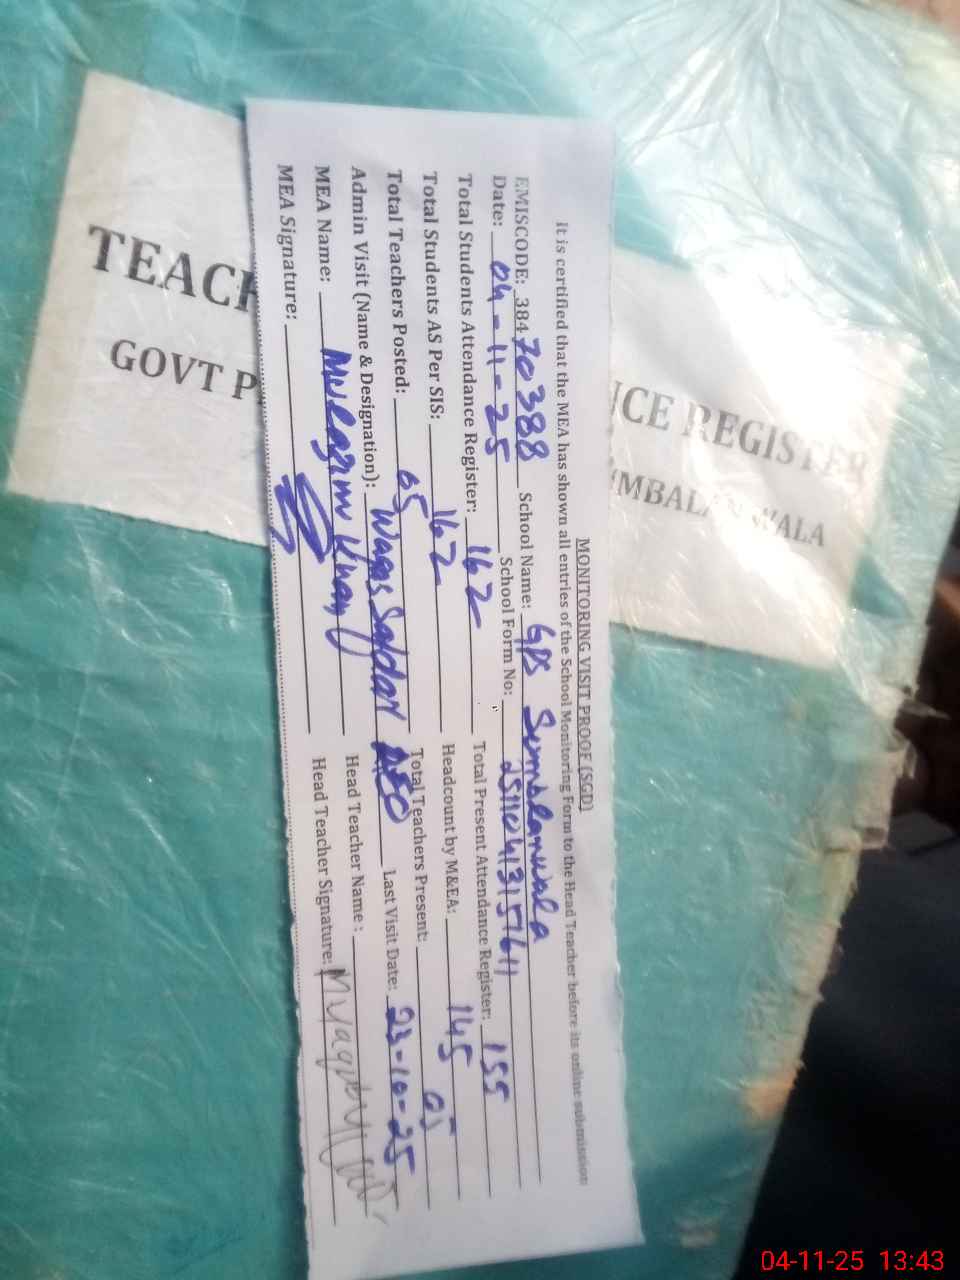 MONITORING VISIT PROOF (SGD)
It is certified that the MEA has shown all entries of the School Monitoring Form to the Head Teacher before its online submission
EMISCODE: 38470388 School Name: GPS Sumblanwala
Date: 04-11-25 School Form No: 25110413157611
Total Students Attendance Register: 162 Total Present Attendance Register: 155
Total Students AS Per SIS: 162 Headcount by M&EA: 145
Total Teachers Posted: 05 Total Teachers Present: 05
Admin Visit (Name & Designation): Waqas Safdar AEO Last Visit Date: 23-10-25
MEA Name: Khan Head Teacher Name:
MEA Signature: Head Teacher Signature:
TEACH NCE REGISTER
GOVT P UMBALANWALA
04-11-25 13:43